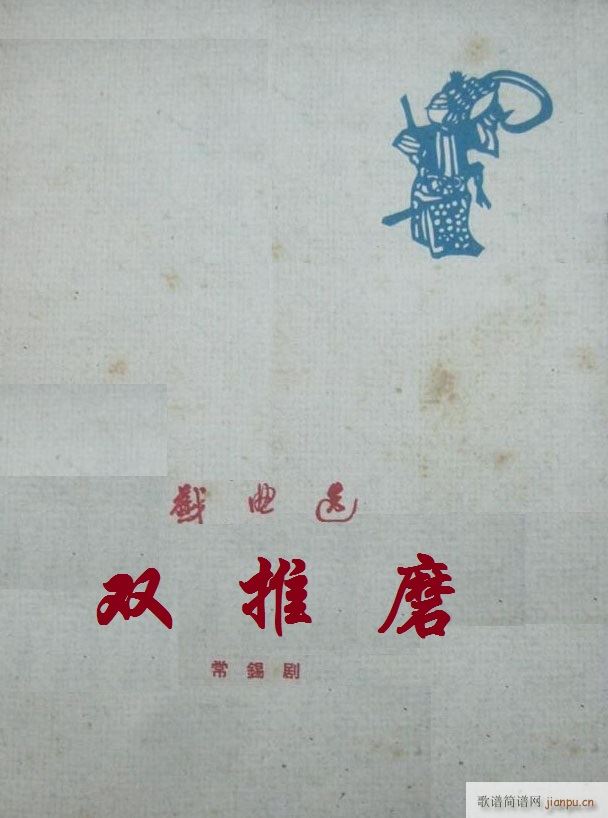 戯曲选
双推磨
常錫剧
歌谱简谱网 jianpu.cn